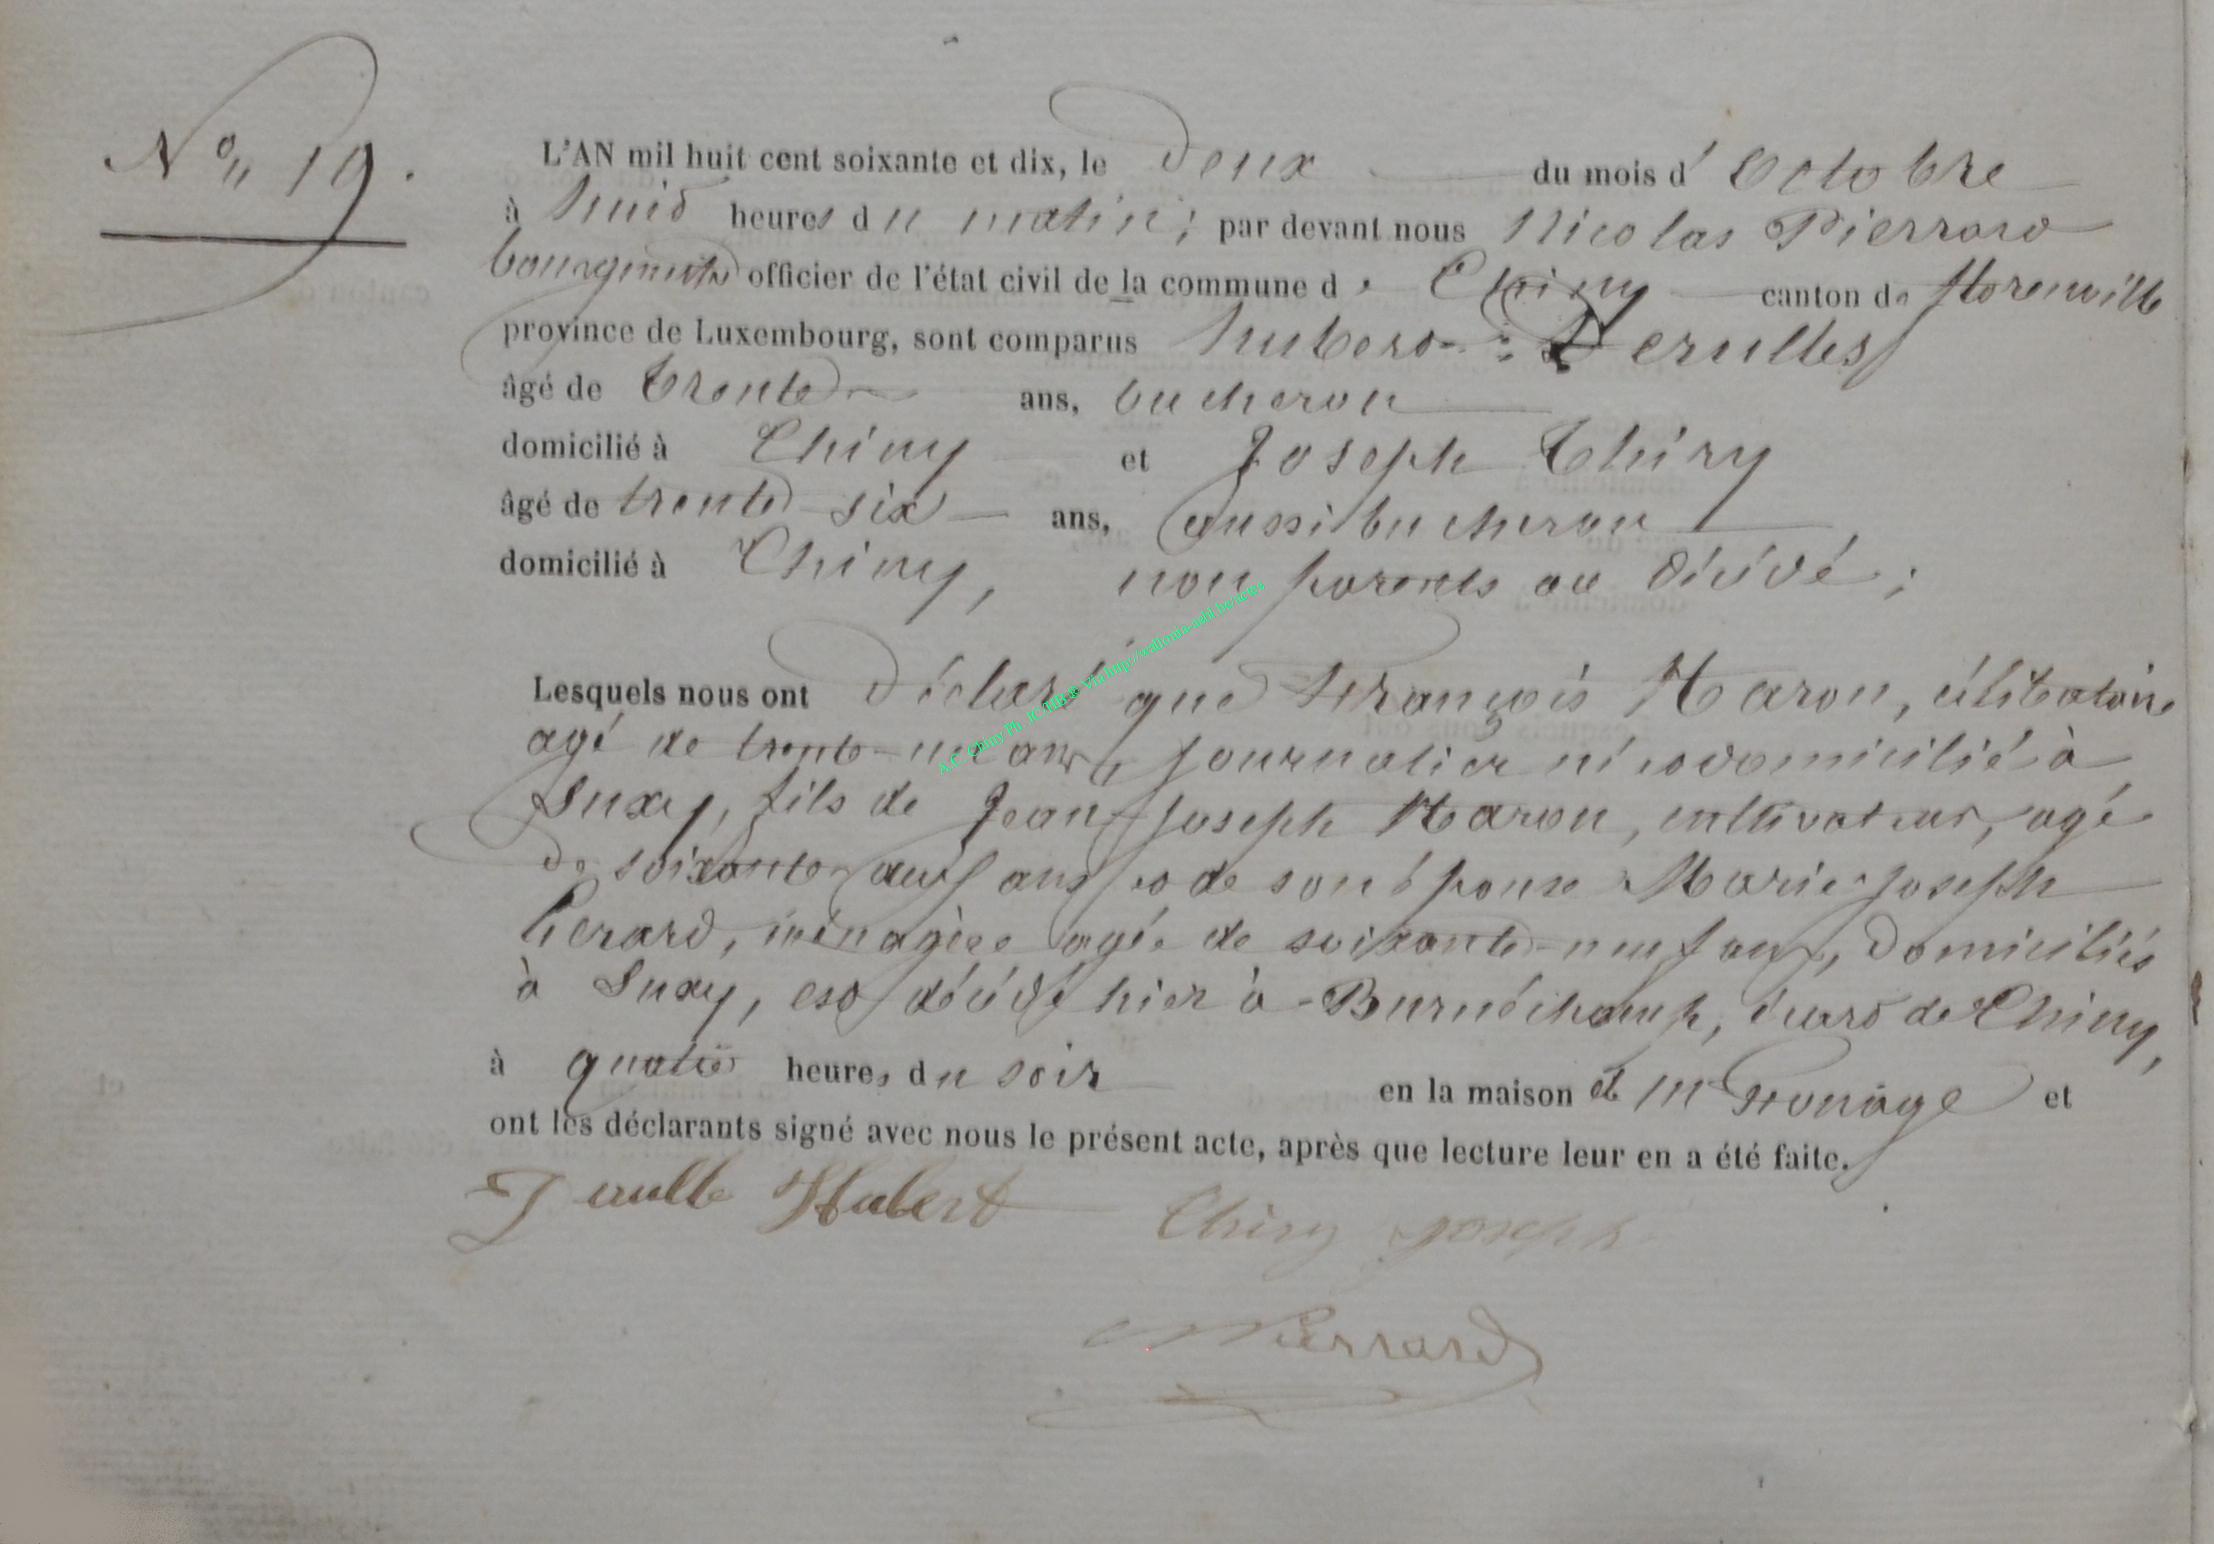 N° 19.
L'AN mil huit cent soixante et dix, le deux du mois d'Octobre
à huit heures du matin; par devant nous Nicolas Pierrard
bourgmestre officier de l'état civil de la commune de Chiny canton de Florenville
province de Luxembourg, sont comparus Hubert
âgé de trente ans, bucheron
domicilié à Chiny et Joseph Thiry
âgé de trente-six ans, aussi bucheron
domicilié à Chiny, non parents au décédé;
Lesquels nous ont déclaré que François Maron, célibataire
agé de trente- ans, journalier né et domicilié à
Suxy, fils de Jean-Joseph Maron, cultivateur, agé
de soixante- ans et de son épouse Marie-Joseph
Gerard, ménagère agée de soixante-neuf ans, domiciliés
à Suxy, est décédé hier à Burnéchamp, écart de Chiny,
à quatre heures du soir en la maison et
ont les déclarants signé avec nous le présent acte, après que lecture leur en a été faite.
Hubert Thiry Joseph
NPierrard